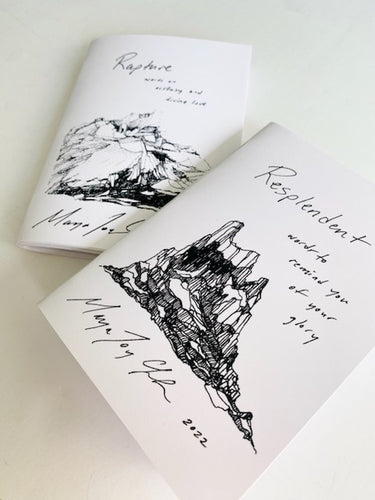 Rapture
words on
ecstasy and
divine love
Maya Joy
Resplendent
words to
remind you
of your
glory
Maya Joy
2022